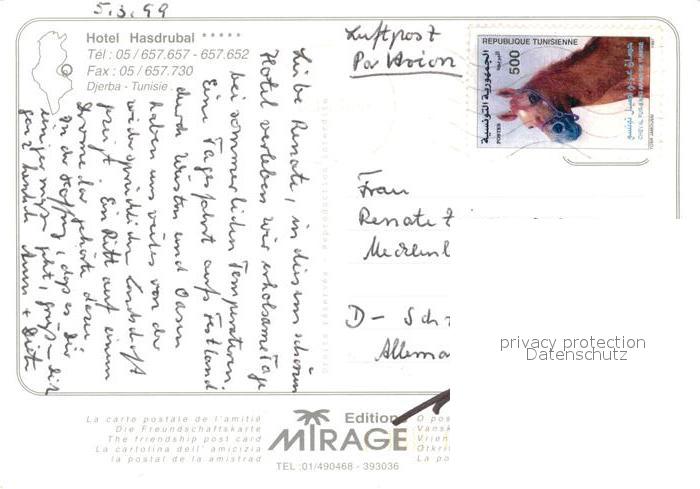 5.3.99
Hotel Hasdrubal *****
Tél : 05 / 657.657 - 657.652
Fax : 05 / 657.730
Djerba - Tunisie
Liebe Renate, in diesem schönen
Hotel verleben wir erholsame Tage
bei sommerlichen Temperaturen.
Eine Tagesfahrt aufs Festland
durch Wüsten und Oasen
haben uns vieles von der
widersprüchlichen Landschaft
gezeigt. Ein Ritt auf einem
Dromedar gehörte dazu.
In der Hoffnung, dass es Dir
einigermaßen geht, grüßen Dich
ganz herzlich
Luftpost
Par Avion
REPUBLIQUE TUNISIENNE
500
الجمهورية التونسية
البريد
POSTES
1997
Frau
Renate
D - Sch
Allema
privacy protection
Datenschutz
La carte postale de l'amitié
Die Freundschaftskarte
The friendship post card
La cartolina dell' amicizia
la postal de la amistrad
Edition
MIRAGE
TEL :01/490468 - 393036
O pos
Vansk
Vrien
Otkri
La po